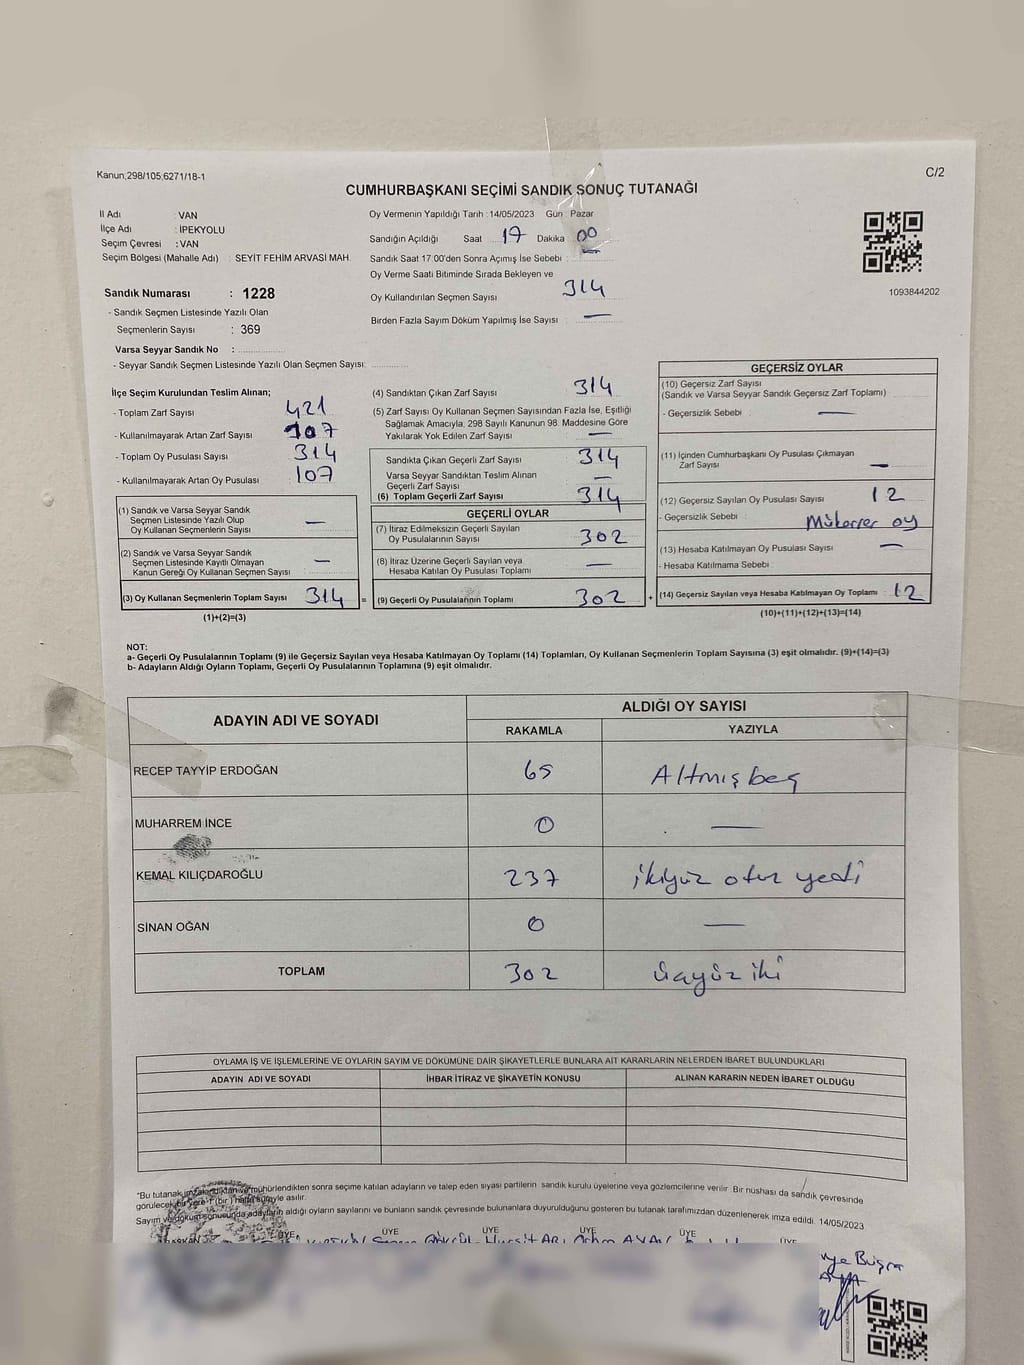 Kanun;298/105;6271/18-1
C/2
CUMHURBAŞKANI SEÇİMİ SANDIK SONUÇ TUTANAĞI
İl Adı : VAN
İlçe Adı : İPEKYOLU
Seçim Çevresi : VAN
Seçim Bölgesi (Mahalle Adı) : SEYİT FEHİM ARVASİ MAH.
Sandık Numarası : 1228
- Sandık Seçmen Listesinde Yazılı Olan
Seçmenlerin Sayısı : 369
Varsa Seyyar Sandık No :
- Seyyar Sandık Seçmen Listesinde Yazılı Olan Seçmen Sayısı:
Oy Vermenin Yapıldığı Tarih : 14/05/2023 Gün : Pazar
Sandığın Açıldığı Saat 17 Dakika 00
Sandık Saat 17:00'den Sonra Açımış İse Sebebi : —
Oy Verme Saati Bitiminde Sırada Bekleyen ve
Oy Kullandırılan Seçmen Sayısı 314
Birden Fazla Sayım Döküm Yapılmış İse Sayısı : —
1093844202
İlçe Seçim Kurulundan Teslim Alınan;
- Toplam Zarf Sayısı 421
- Kullanılmayarak Artan Zarf Sayısı 107
- Toplam Oy Pusulası Sayısı 314
- Kullanılmayarak Artan Oy Pusulası 107
(1) Sandık ve Varsa Seyyar Sandık
Seçmen Listesinde Yazılı Olup
Oy Kullanan Seçmenlerin Sayısı —
(2) Sandık ve Varsa Seyyar Sandık
Seçmen Listesinde Kayıtlı Olmayan
Kanun Gereği Oy Kullanan Seçmen Sayısı —
(3) Oy Kullanan Seçmenlerin Toplam Sayısı 314 =
(1)+(2)=(3)
(4) Sandıktan Çıkan Zarf Sayısı 314
(5) Zarf Sayısı Oy Kullanan Seçmen Sayısından Fazla İse, Eşitliği
Sağlamak Amacıyla, 298 Sayılı Kanunun 98. Maddesine Göre
Yakılarak Yok Edilen Zarf Sayısı —
Sandıkta Çıkan Geçerli Zarf Sayısı 314
Varsa Seyyar Sandıktan Teslim Alınan
Geçerli Zarf Sayısı —
(6) Toplam Geçerli Zarf Sayısı 314
GEÇERLİ OYLAR
(7) İtiraz Edilmeksizin Geçerli Sayılan
Oy Pusulalarının Sayısı 302
(8) İtiraz Üzerine Geçerli Sayılan veya
Hesaba Katılan Oy Pusulası Toplamı —
(9) Geçerli Oy Pusulalarının Toplamı 302 +
GEÇERSİZ OYLAR
(10) Geçersiz Zarf Sayısı
(Sandık ve Varsa Seyyar Sandık Geçersiz Zarf Toplamı)
- Geçersizlik Sebebi : —
(11) İçinden Cumhurbaşkanı Oy Pusulası Çıkmayan
Zarf Sayısı —
(12) Geçersiz Sayılan Oy Pusulası Sayısı 12
- Geçersizlik Sebebi : Mükerrer oy
(13) Hesaba Katılmayan Oy Pusulası Sayısı —
- Hesaba Katılmama Sebebi :
(14) Geçersiz Sayılan veya Hesaba Katılmayan Oy Toplamı 12
(10)+(11)+(12)+(13)=(14)
NOT:
a- Geçerli Oy Pusulalarının Toplamı (9) ile Geçersiz Sayılan veya Hesaba Katılmayan Oy Toplamı (14) Toplamları, Oy Kullanan Seçmenlerin Toplam Sayısına (3) eşit olmalıdır. (9)+(14)=(3)
b- Adayların Aldığı Oyların Toplamı, Geçerli Oy Pusulalarının Toplamına (9) eşit olmalıdır.
ADAYIN ADI VE SOYADI
ALDIĞI OY SAYISI
RAKAMLA YAZIYLA
RECEP TAYYİP ERDOĞAN 65 Altmışbeş
MUHARREM İNCE 0 —
KEMAL KILIÇDAROĞLU 237 ikiyüz otuz yedi
SİNAN OĞAN 0 —
TOPLAM 302 üçyüz iki
OYLAMA İŞ VE İŞLEMLERİNE VE OYLARIN SAYIM VE DÖKÜMÜNE DAİR ŞİKAYETLERLE BUNLARA AİT KARARLARIN NELERDEN İBARET BULUNDUKLARI
ADAYIN ADI VE SOYADI İHBAR İTİRAZ VE ŞİKAYETİN KONUSU ALINAN KARARIN NEDEN İBARET OLDUĞU
*Bu tutanak imzalandıktan ve mühürlendikten sonra seçime katılan adayların ve talep eden siyasi partilerin sandık kurulu üyelerine veya gözlemcilerine verilir. Bir nüshası da sandık çevresinde
görülecek bir yere 1 (bir) hafta süreyle asılır.
Sayım ve döküm sonucunda adayların aldığı oyların sayılarını ve bunların sandık çevresinde bulunanlara duyurulduğunu gösteren bu tutanak tarafımızdan düzenlenerek imza edildi. 14/05/2023
BAŞKAN ÜYE ÜYE ÜYE ÜYE ÜYE ÜYE
Büşra